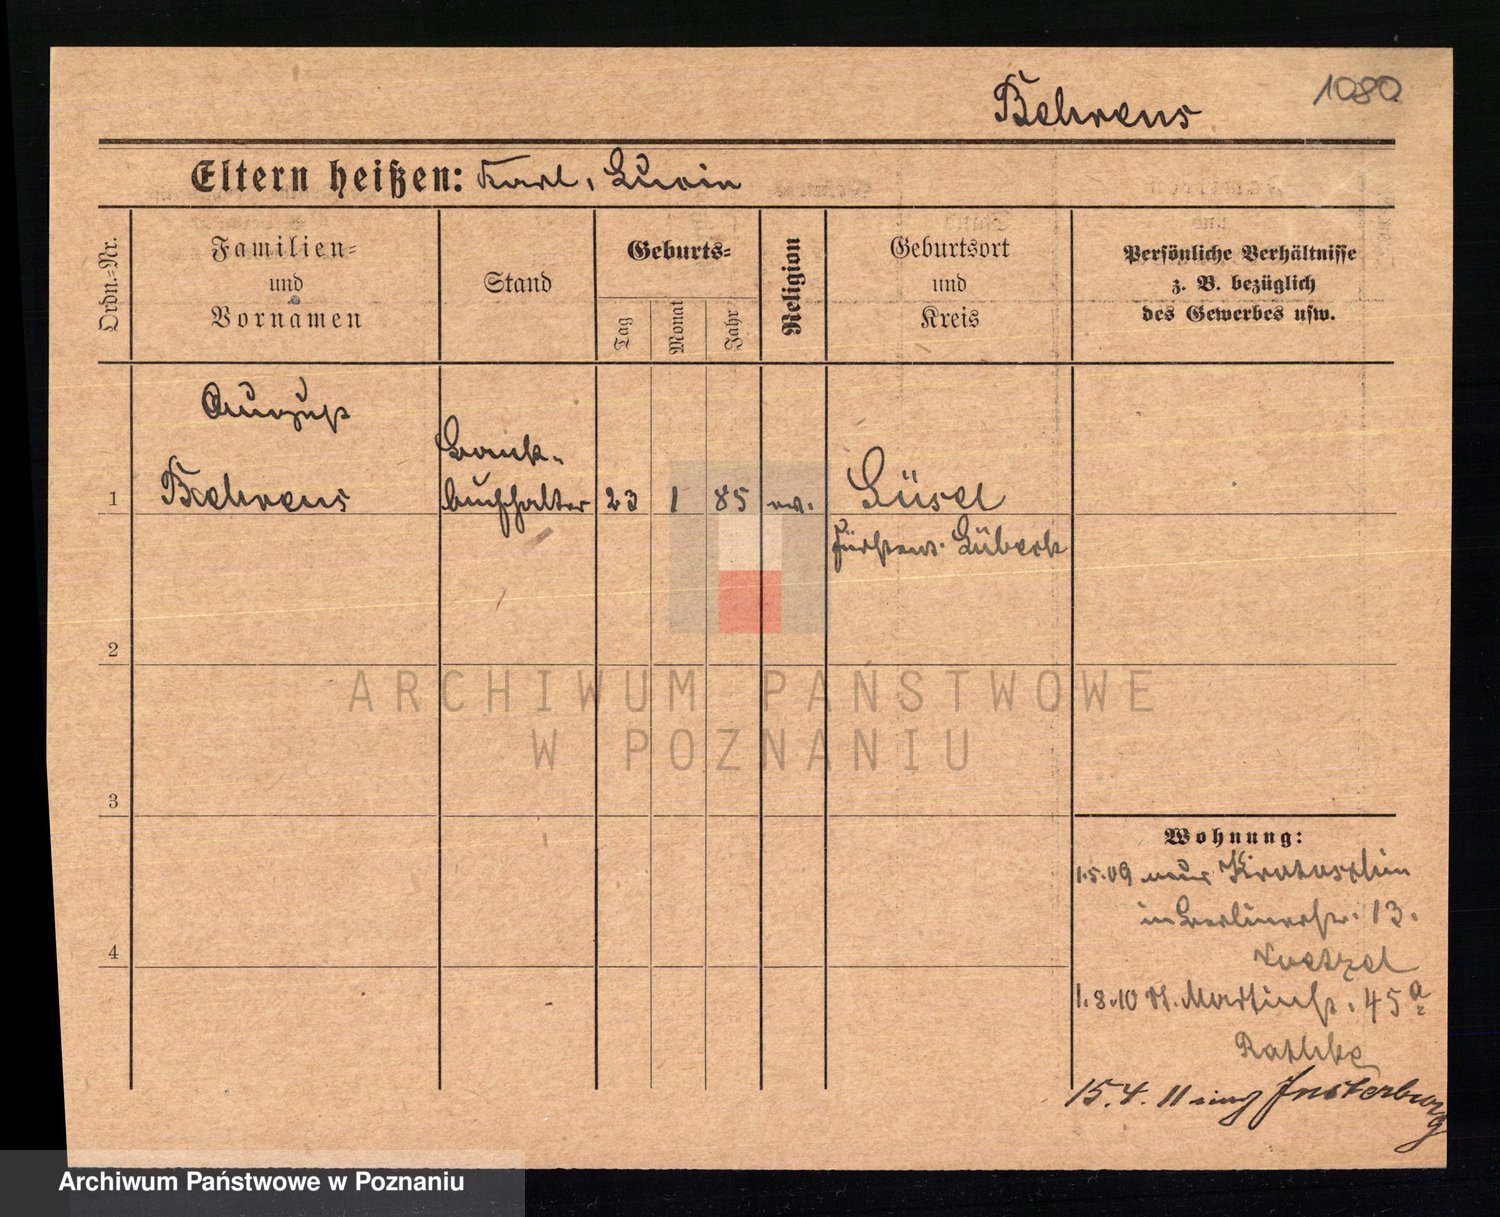 Behrens
1080
Eltern heißen: Karl,
Ordn.=Nr.
Familien=
und
Vornamen
Stand
Geburts=
Tag
Monat
Jahr
Religion
Geburtsort
und
Kreis
Persönliche Verhältnisse
z. B. bezüglich
des Gewerbes usw.
August
Behrens
Bank-
buchhalter
1
23
1
85
ev.
Lübeck
2
3
4
Wohnung:
1.5.09 Krotoschin
in Berlinerstr. 13.
1.8.10 St. Martinstr. 45a
Rathke
15.4.11 Insterburg
ARCHIWUM PAŃSTWOWE
W POZNANIU
Archiwum Państwowe w Poznaniu